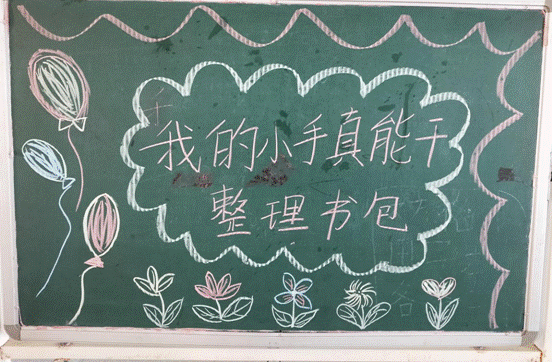 我的小手真能干
整理书包